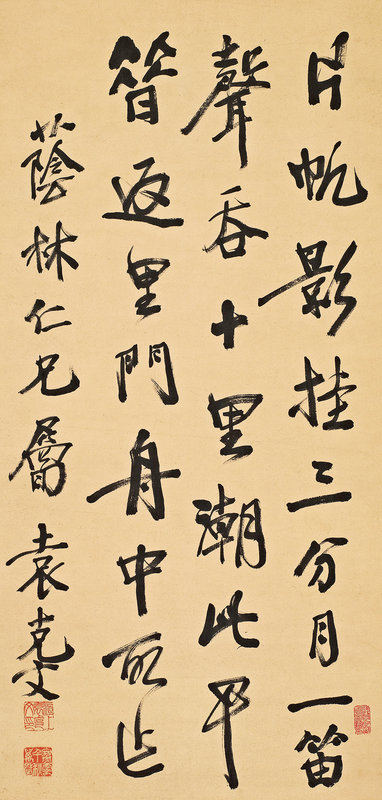 片帆影挂三分月一笛
聲吞十里潮此予
昔返里門舟中所作
蔭林仁兄屬 袁克文